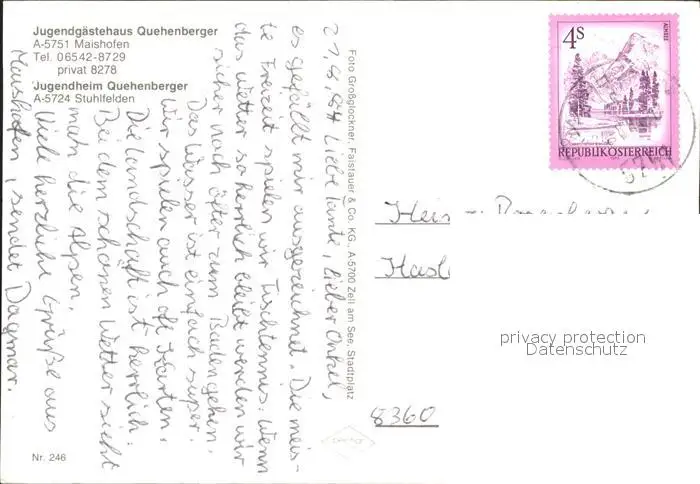 Jugendgästehaus Quehenberger
A-5751 Maishofen
Tel. 06542-8729
privat 8278
Jugendheim Quehenberger
A-5724 Stuhlfelden
21,8,84 Liebe Tante, lieber Onkel,
es gefällt mir ausgezeichnet. Die meis-
te Freizeit spielen wir Tischtennis. Wenn
das Wetter so herrlich bleibt werden wir
sicher noch öfter zum Baden gehen.
Das Wasser ist einfach super.
Wir spielen auch oft Karten.
Die Landschaft ist herrlich.
Bei dem schönen Wetter sieht
man die Alpen.
Viele herzliche Grüße aus
Maishofen, sendet Dagmar.
Nr. 246
Foto Großglockner, Falstauer & Co. KG. A-5700 Zell am See, Stadtplatz
4S
ALMSEE
REPUBLIK ÖSTERREICH
8360
privacy protection
Datenschutz